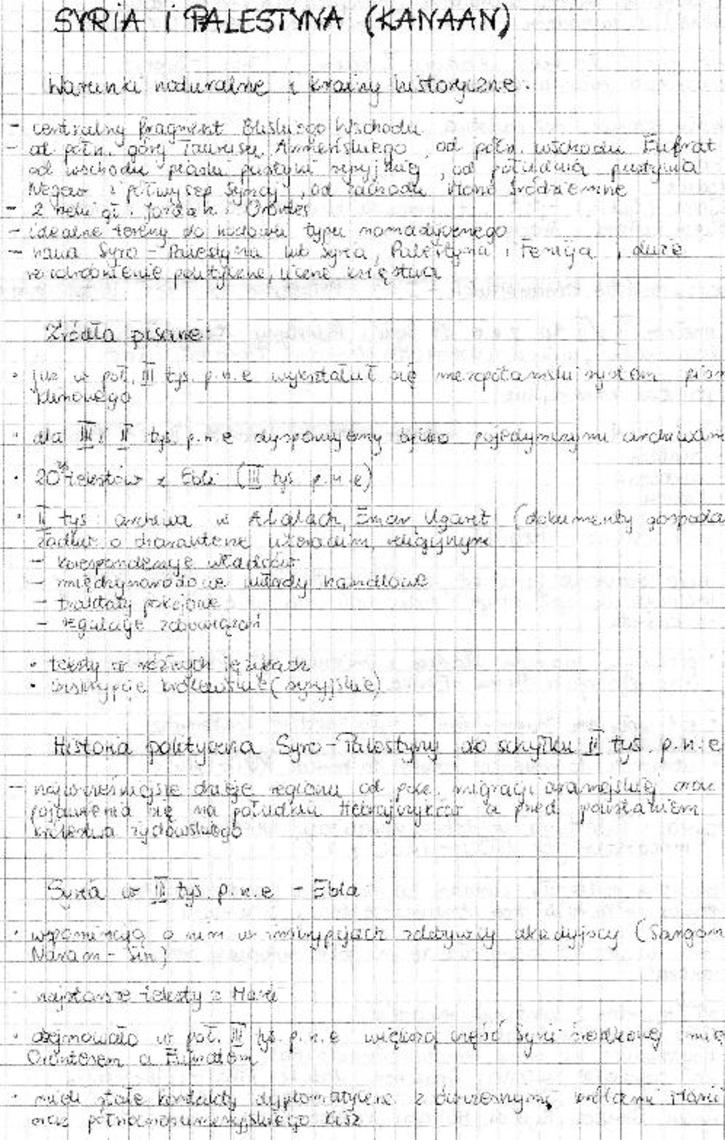 SYRIA I PALESTYNA (KANAAN)
Warunki naturalne i krainy historyczne.
- centralny fragment Bliskiego Wschodu
- od płn. góry Taurusu Armeńskiego, od płn. wschodu Eufrat
od wschodu piaski pustyni syryjskiej, od południa pustynia
Negew i półwysep Synaj, od zachodu Morze Śródziemne
- 2 rzeki gł. Jordan i Orontes
- idealne tereny do hodowli typu nomadycznego
- nazwa Syro-Palestyna lub Syria, Palestyna i Fenicja, duże
rozdrobnienie polityczne, liczne księstwa
Źródła pisane:
• już w poł. III tys. p.n.e wykształcił się mezopotamski system pisma
klinowego
• dla III i II tys. p.n.e dysponujemy tylko pojedynczymi archiwami
• 20 tekstów z Ebli (III tys. p.n.e)
• II tys. archiwa w Alalach, Emar, Ugarit (dokumenty gospoda
rzadziej o charakterze literackim, religijnym
- korespondencje władców
- międzynarodowe układy handlowe
- traktaty pokojowe
- regulacje zobowiązań
• teksty w różnych językach
• inskrypcje królewskie (syryjskie)
Historia polityczna Syro-Palestyny do schyłku II tys. p.n.e
- najwcześniejsze dzieje regionu od pocz. migracji aramejskiej oraz
pojawienia się na południu Hebrajczyków a przed powstaniem
królestwa żydowskiego
Syria w III tys. p.n.e - Ebla
• wspominają o nim w inskrypcjach zdobywcy akadyjscy (Sargon
Naram-Sin)
• najstarsze teksty z Mari
• obejmowało w poł. III tys. p.n.e większą część Syrii środkowej mię
Orontesem a Eufratem
• mieli stałe kontakty dyplomatyczne z ówczesnymi królami Mari
oraz północnosumeryjskiego Kisz